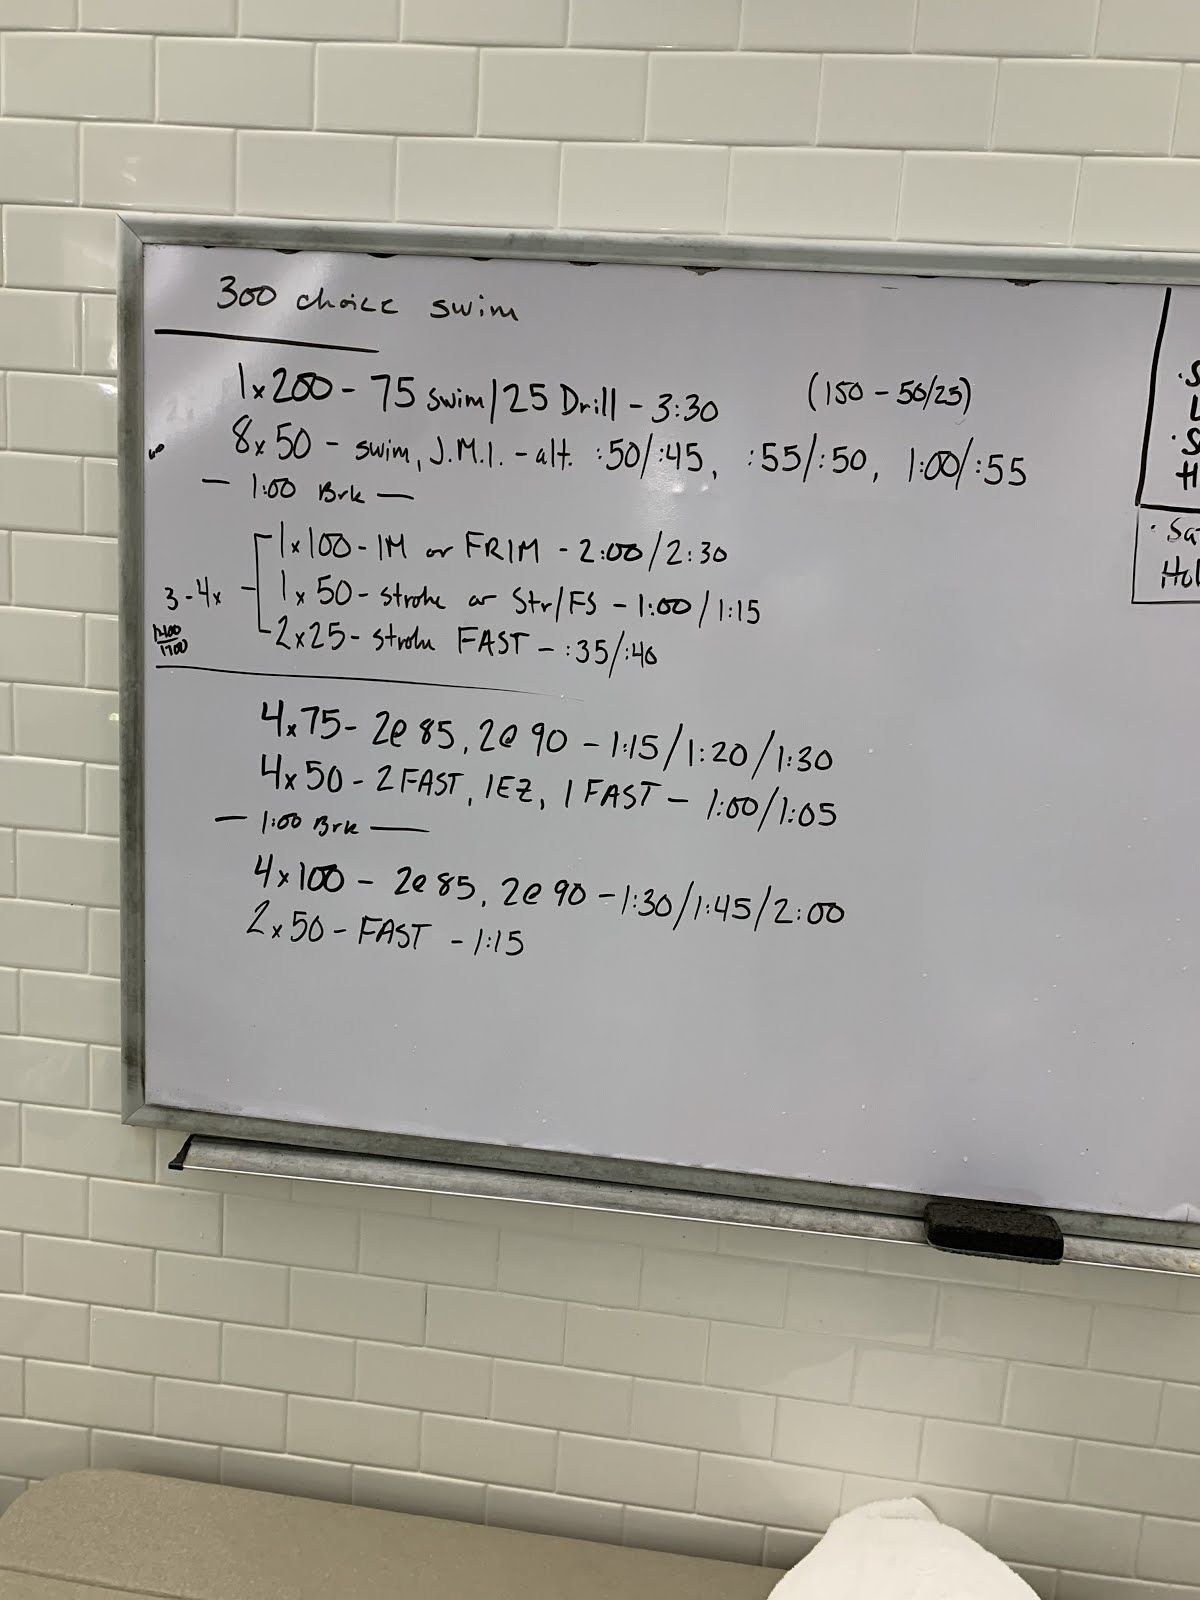 300 choice swim
1x200 - 75 swim/25 Drill - 3:30 (150 - 50/25)
8x50 - swim, J.M.I. - alt. :50/:45, :55/:50, 1:00/:55
— 1:00 Brk —
1x100 - IM or FRIM - 2:00/2:30
3-4x
1x50 - stroke or Str/FS - 1:00/1:15
2x25 - stroke FAST - :35/:40
1700
4x75 - 2@85, 2@90 - 1:15/1:20/1:30
4x50 - 2 FAST, 1EZ, 1 FAST - 1:00/1:05
— 1:00 Brk —
4x100 - 2@85, 2@90 - 1:30/1:45/2:00
2x50 - FAST - 1:15